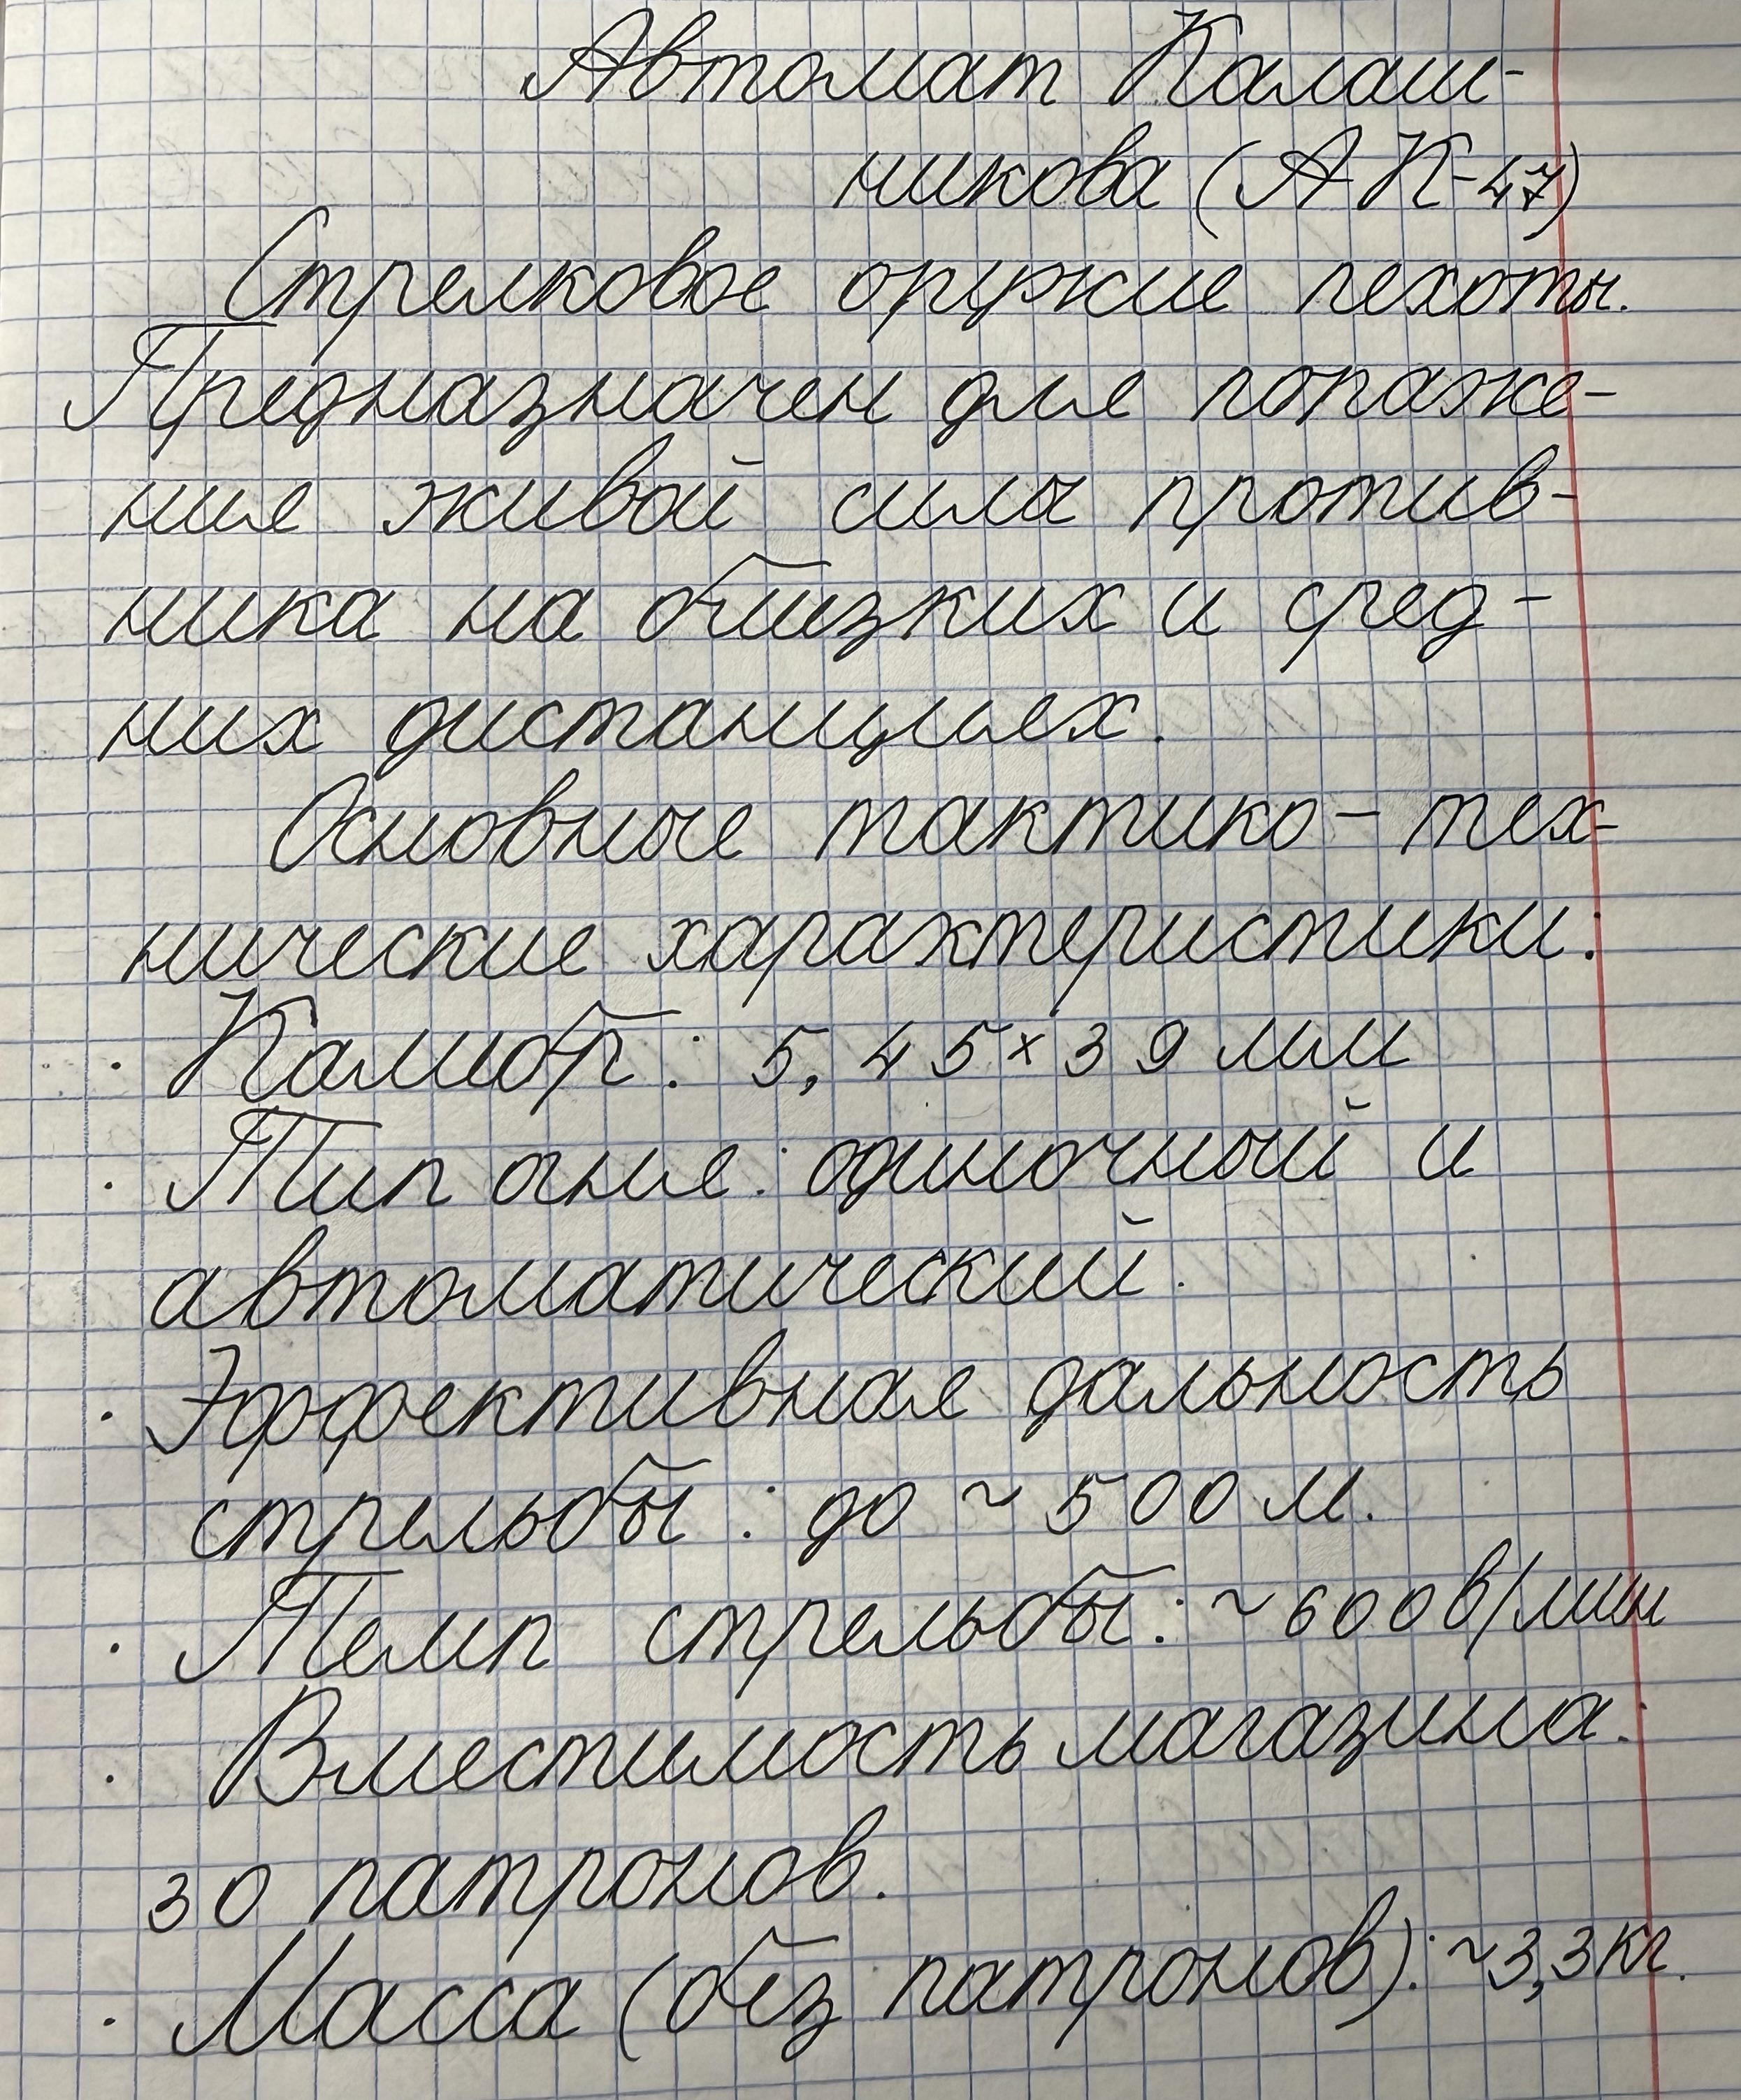 Автомат Калаш-
никова (АК-47)
Стрелковое оружие пехоты.
Предназначен для пораже-
ния живой силы против-
ника на близких и сред-
них дистанциях.
Основные тактико-тех-
нические характеристики:
· Калибр: 5,45×39 мм
· Тип огня: одиночный и
автоматический.
· Эффективная дальность
стрельбы: до ~ 500 м.
· Темп стрельбы: ~600в/мин
· Вместимость магазина:
30 патронов.
· Масса (без патронов): ~3,3кг.